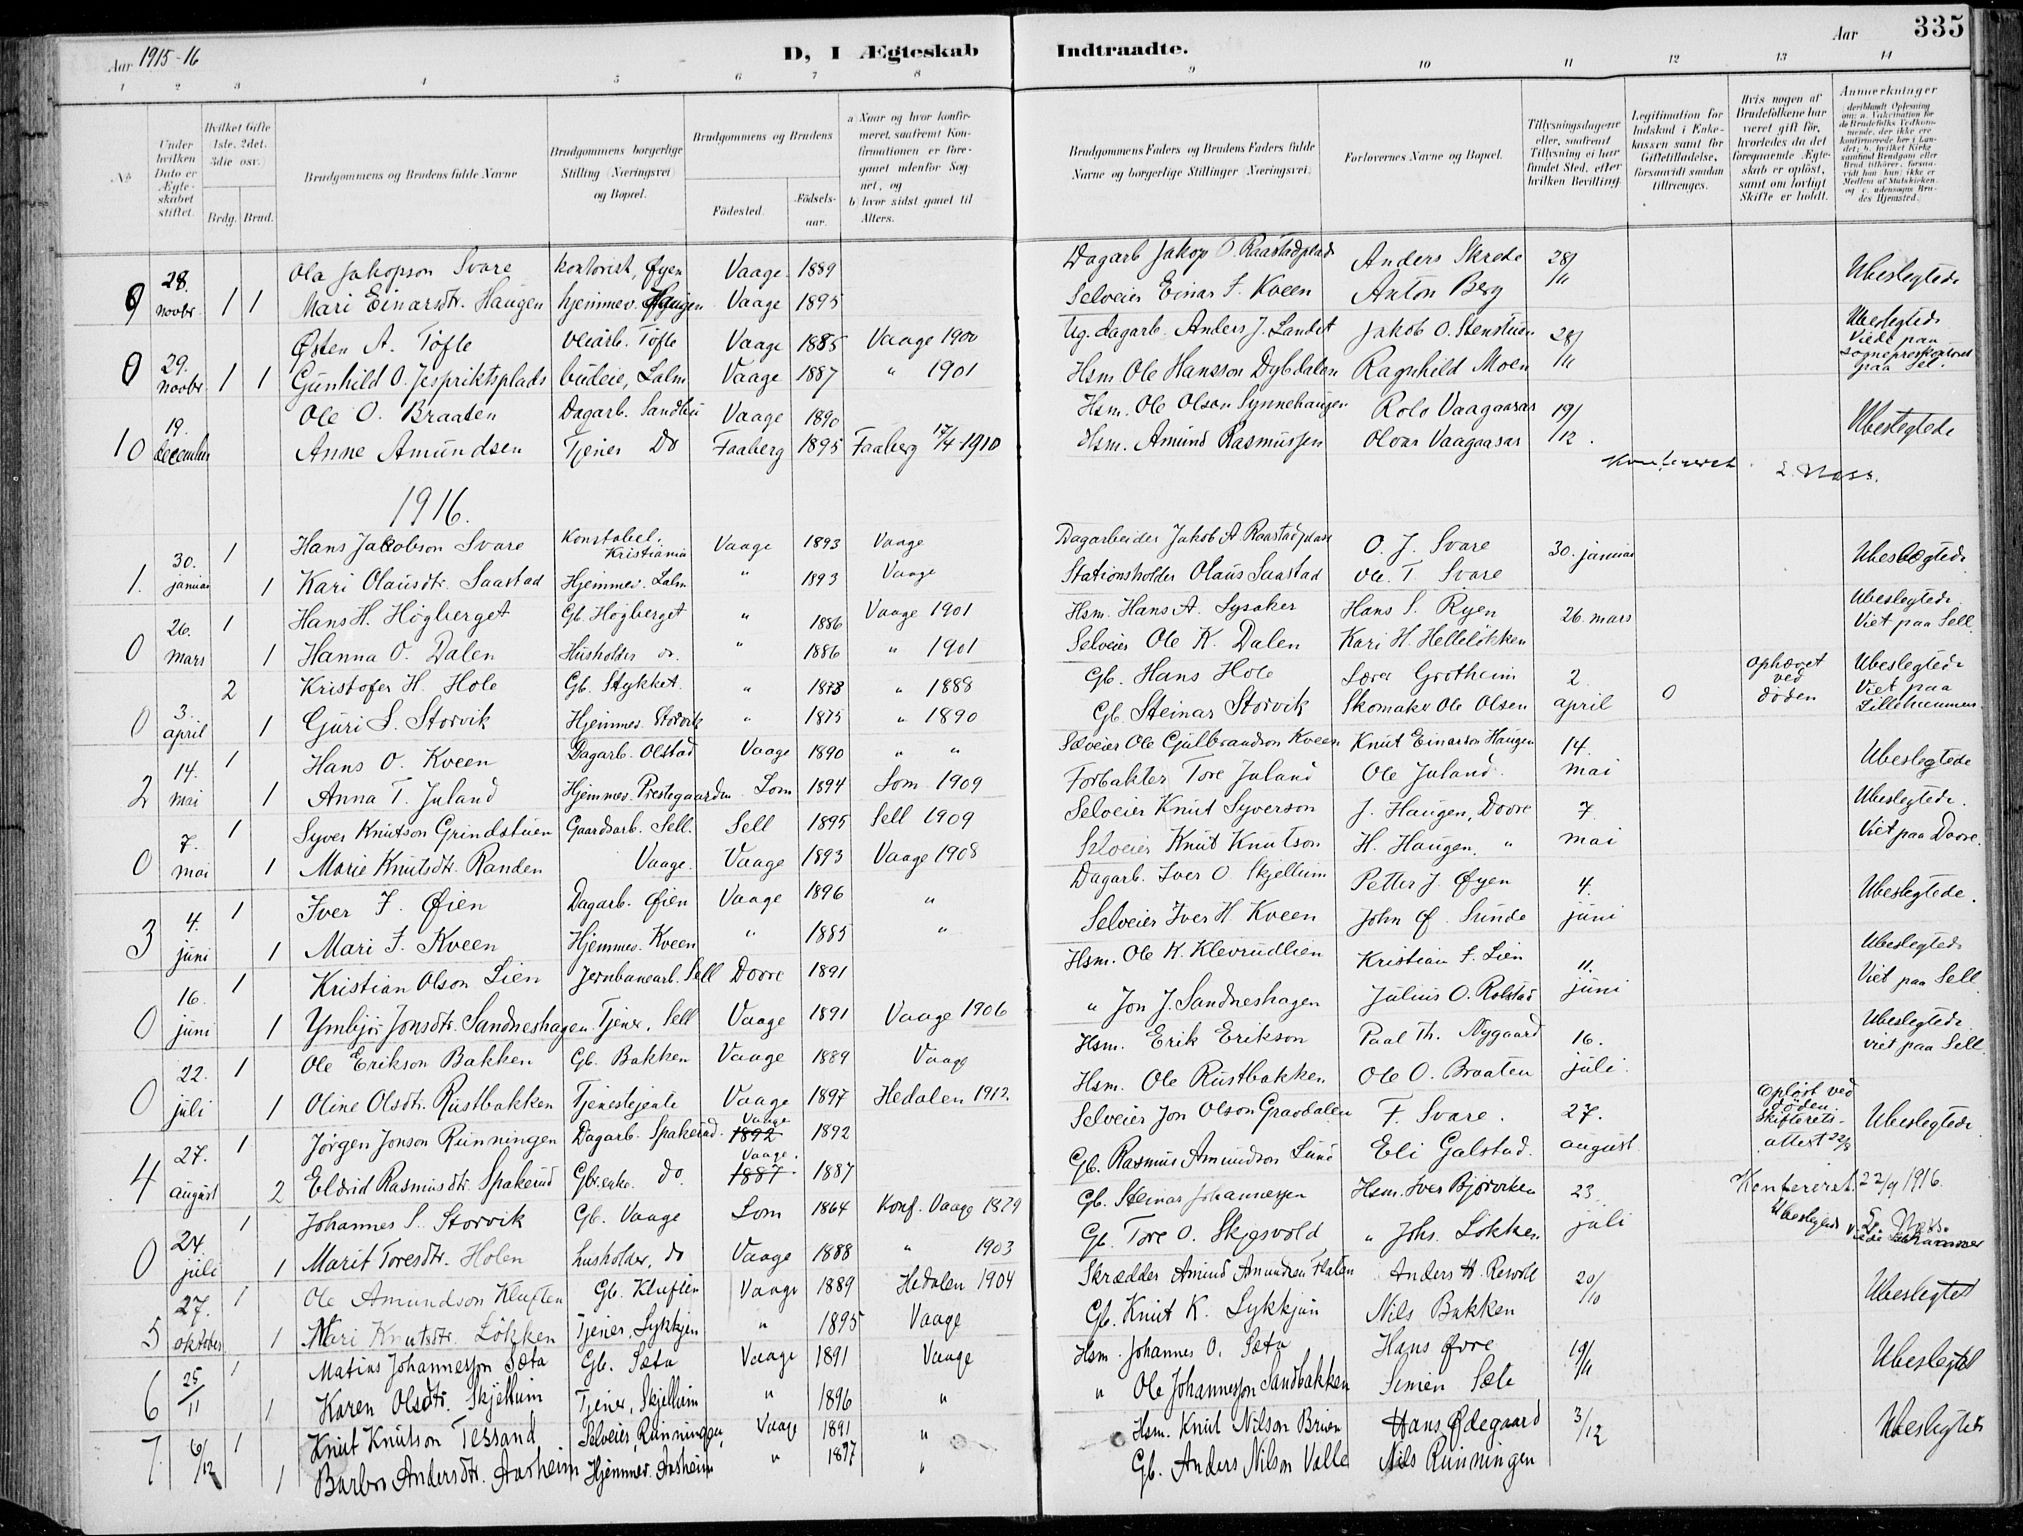 Aar 1915-16
D, I Ægteskab Indtraadte.
Aar 335
1 2 3 4 5 6 7 8 9 10 11 12 13 14
No.
Under hvilken Dato er Ægteskabet stiftet.
Hvilket Gifte 1ste, 2det, 3die osv.
Brdg. Brud.
Brudgommens og Brudens fulde Navne
Brudgommens borgerlige Stilling (Næringsvei) og Bopæl.
Brudgommens og Brudens
Fødested. Fødselsaar.
a) Naar og hvor konfirmeret, saafremt Konfirmationen er foregaaet udenfor Sognet, og
b) hvor sidst gaaet til Alters.
Brudgommens Faders og Brudens Faders fulde Navne og borgerlige Stillinger (Næringsvei)
Forlovernes Navne og Bopæl.
Tillysningsdagene eller, saafremt Tillysning ei har fundet Sted, efter hvilken Bevilling.
Legitimation for Indskud i Enkekassen samt for Giftetilladelse, forsaavidt saadan tiltrænges.
Hvis nogen af Brudefolkene har været gift før, hvorledes da det foregaaende Ægteskab er opløst, samt om lovligt Skifte er holdt.
Anmerkninger
deriblandt Oplysning om: a. Vaccination for de Brudefolks Vedkommende, der ikke ere konfirmerede her i Landet; b. hvilket Kirkesamfund Brudgom eller Brud tilhører, forsaavidt han (hun) ikke er Medlem af Statskirken, og c. udensogns Brudes Hjemsted.
Ola Jakopson Svare kontorist, Øyen Vaage 1889 Dagarb Jakop O. Raastadplads Anders Skrede 28/11
9 28. novbr. 1 1 Mari Einarsdtr. Haugen hjemmev. Haugen Vaage 1895 Selveier Einar J. Kveen Anton Berg Ubeslegtede
Østen A. Tøfte veiarb. Tøfte Vaage 1885 Vaage 1900 Ug. dagarb. Anders J. Landet Jakob O. Stenstuen 28/11 Ubeslegtede
0 29. novbr 1 1 Gunhild O. Jespriktsplads budeie, Lalm Vaage 1887 " 1901 Hsm. Ole Hansson Dybdalen Ragnhild Moen Viede paa sogneprestkontoret paa Sel.
Ole O. Braaten Dagarb. Sandbu Vaage 1890 Hsm. Ole Olson Synnehaugen Rolv Vaagaasar 19/12.
10 19. december Anne Amundsen Tjener Do Faaberg 1895 Faaberg 17/4-1910 Hsm. Amund Rasmussen Olvar Vaagaasar Ubeslegtede
Konfereret. L. Næss.
1916.
Hans Jakobson Svare Konstabel. Kristiania Vaage 1893 Vaage Dagarbeider Jakob A Raastadplads O. J. Svare 30. januar
1. 30. januar 1 1 Kari Olausdtr. Saastad Hjemmev. Lalm " 1893 Vaage Stationsholder Olaus Saastad Ole T. Svare Ubeslegtede
Hans H. Högberget Gb. Högberget " 1886 Vaage 1901 Hsm. Hans A. Sysaker Hans S. Ryen 26. mars Ubeslegtede.
0 26. mars 1 1 Hanna O. Dalen Husholder do. " 1886 " 1901 Selveier Ole K. Dalen Kari H. Hellelökken Viet paa Sell.
2 Kristofer H. Hole Gb. Stykket. " 1873 " 1888 Gb. Hans Hole Lærer Grotheim 2. april 0 Ophævet ved døden Ubeslegtede
0 3. april 1 Guri S. Storvik Hjemmev. Storvik " 1875 " 1890 Gb. Steinar Storvik Skomaker Ole Olsen Viet paa Lillehammer
Hans O. Kveen Dagarb. Olstad Vaage 1890 " " Selveier Ole Gulbrandson Kveen Knut Einarson Haugen 14. mai
2 14. mai 1 1 Anna T. Juland Hjemmev. Prestegaarden Lom 1894 Lom 1909 Forpakter Tore Juland Ole Juland. Ubeslegtede
Syver Knutson Grindstuen Gaardsarb. Sell. Sell 1895 Sell 1909 Selveier Knut Syverson J. Haugen, Dovre 7. mai Ubeslegtede.
0 7. mai 1 1 Marie Knutsdtr. Randen Vaage. Vaage 1893 Vaage 1908 Selveier Knut Knutson H. Haugen, " Viet paa Dovre.
Iver I. Øien Dagarb. Øien Vaage 1896 " Dagarb. Iver O. Skjellum Petter J. Øyen 4. juni
3 4. juni 1 1 Mari I. Kveen Hjemmev. Kveen " 1885 " Selveier Iver H. Kveen John Ø. Sunde Ubeslegtede.
Kristian Olson Lien Jernbanearb. Sell Dovre 1891 Hsm. Ole K. Klevrudlien Kristian F. Lien 11. juni Ubeslegtede
0 16. juni 1 1 Ymbjør Jonsdtr. Sandneshagen Tjener, Sell Vaage 1891 Vaage 1906 " Jon J. Sandneshagen Julius O. Rolstad Viet paa Sell.
Ole Erikson Bakken Gb. Bakken Vaage 1889 Vaage Hsm. Erik Erikson Paal Th. Nygaard 16. juli. Ubeslegtede
0 22. juli 1 1 Oline Olsdtr. Rustbakken Tjenestejente Vaage 1897 Hedalen 1912. Hsm. Ole Rustbakken Ole O. Braaten viet paa Sell.
Jørgen Jonson Runningen Dagarb. Spakerud. Vaage 1892 1892 Selveier Jon Olson Gravdalen F. Svare. 27. august Opløst ved døden. Skifterets-attest 22/8
4 27. august 1 2 Eldrid Rasmusdtr. Spakerud Gbr.enke. do. Vaage. 1887 1887 Gb. Rasmus Amundson Lund Eli Galstad. Ubeslegtede
Konfereret. 22/9 1916. L. Næss.
Johannes S. Storvik Gb. Vaage Lom 1864 Konf. Vaage 1879 Gb. Steinar Johannessen Hsm. Iver Bjørviken 23. juli Ubeslegtede
0 24. juli 1 1 Marit Toresdtr. Holen husholder, do Vaage 1888 " 1903 Gb. Tore O. Skjesvold " Johs. Lökken
Ole Amundson Kluften Gb. Kluften Vaage 1889 Hedalen 1904 Skrædder Amund Amundsen Flaten Anders H. 20/10
5 27. oktober 1 1 Mari Knutsdtr. Lökken Tjener, Sykkjen " 1895 Vaage Gb. Knut K. Sykkjen Nils Bakken Ubeslegted
Matias Johannesson Sæta Gb. Sæta Vaage 1891 Vaage Hsm. Johannes O. Sæta Hans Øvre 19/11
6 25/11 1 1 Karen Olsdtr. Skjellum Tjener, Skjellum " 1896 " " Ole Johannesson Sandbakken Simen Sæte Ubeslegted
Knut Knutson Tessand Selveier, Runningen, Vaage 1891 " Hsm. Knut Nilson Bruen Hans Ødegaard 3/12
7. 6/12 1 1 Barbro Andersdtr. Aasheim Hjemmev. Aasheim " 1897 " Gb. Anders Nilson Valle Nils Runningen Ubeslegtet